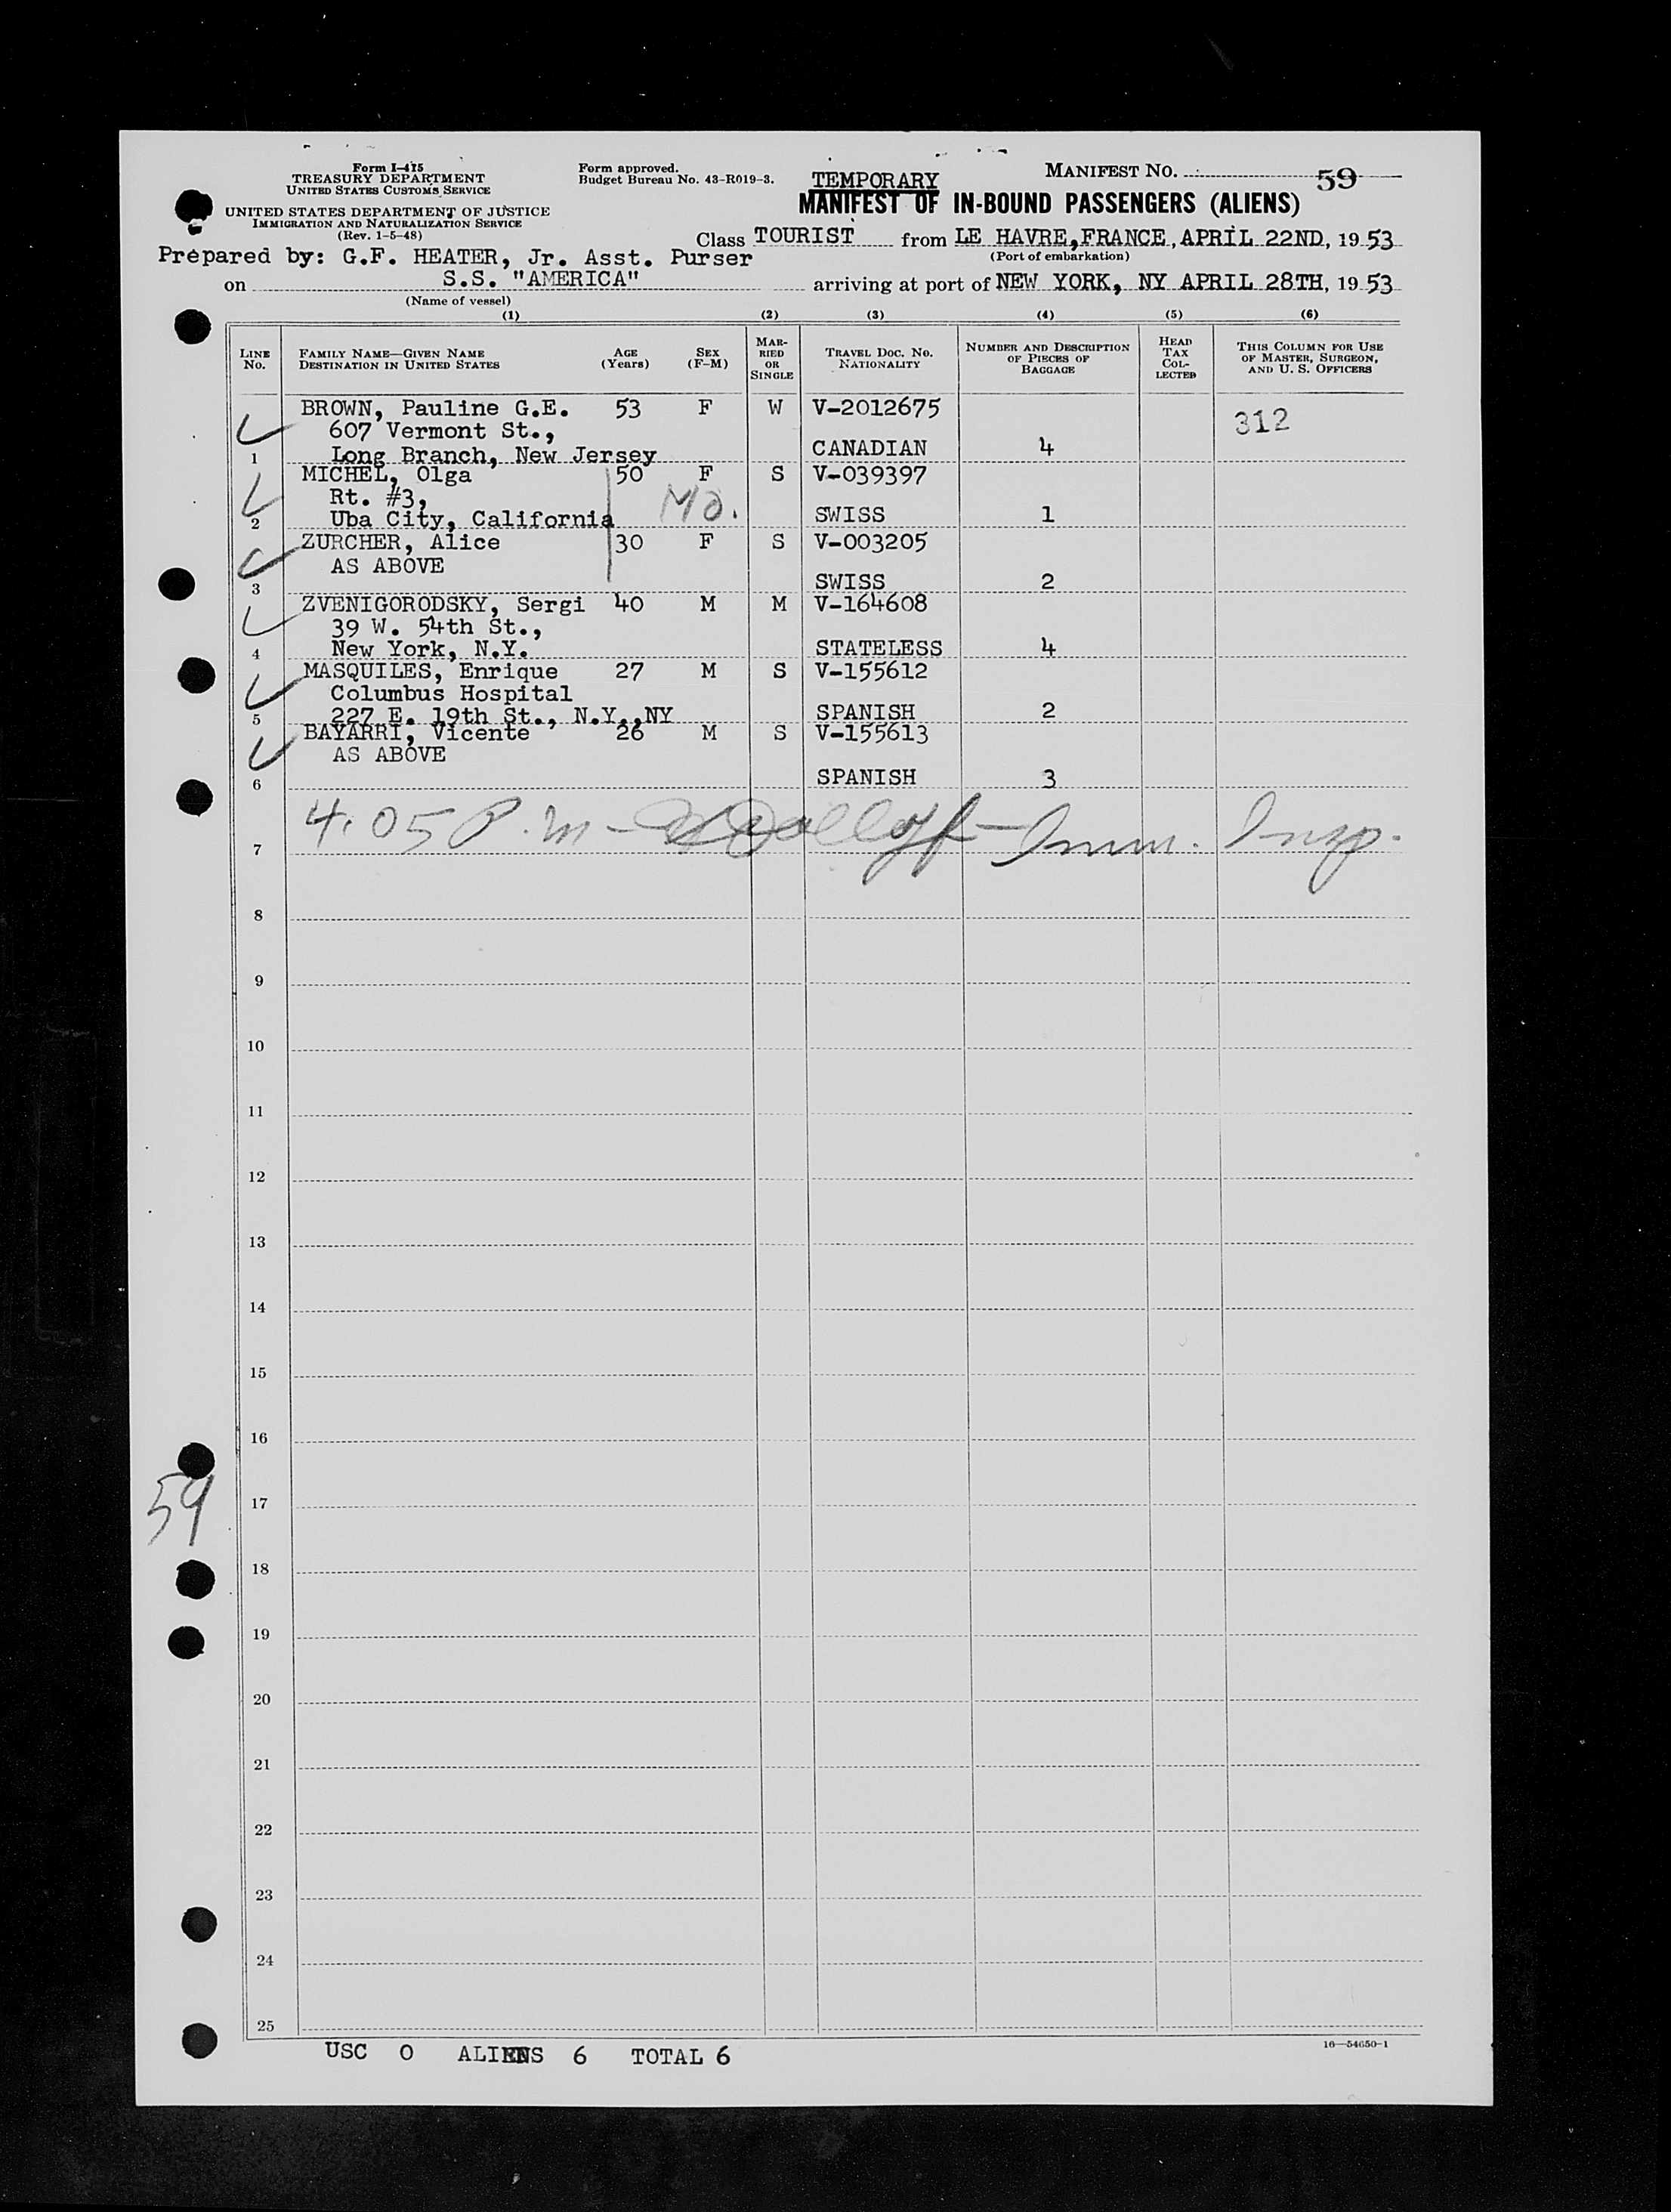 Form I-415
TREASURY DEPARTMENT
UNITED STATES CUSTOMS SERVICE
UNITED STATES DEPARTMENT OF JUSTICE
IMMIGRATION AND NATURALIZATION SERVICE
(Rev. 1-5-48)
Form approved.
Budget Bureau No. 43-R019-3.
TEMPORARY
MANIFEST No. 59
MANIFEST OF IN-BOUND PASSENGERS (ALIENS)
Class TOURIST from LE HAVRE, FRANCE, APRIL 22ND, 1953
(Port of embarkation)
Prepared by: G.F. HEATER, Jr. Asst. Purser
on S.S. "AMERICA" arriving at port of NEW YORK, NY APRIL 28TH, 1953
(Name of vessel)
(1) (2) (3) (4) (5) (6)
LINE No. FAMILY NAME—GIVEN NAME DESTINATION IN UNITED STATES AGE (Years) SEX (F-M) MARRIED OR SINGLE TRAVEL DOC. No. NATIONALITY NUMBER AND DESCRIPTION OF PIECES OF BAGGAGE HEAD TAX COLLECTED THIS COLUMN FOR USE OF MASTER, SURGEON, AND U. S. OFFICERS
BROWN, Pauline G.E. 53 F W V-2012675 312
607 Vermont St.,
1 Long Branch, New Jersey CANADIAN 4
MICHEL, Olga 50 F S V-039397
Rt. #3,
2 Uba City, California SWISS 1
ZURCHER, Alice 30 F S V-003205
AS ABOVE
3 SWISS 2
ZVENIGORODSKY, Sergi 40 M M V-164608
39 W. 54th St.,
4 New York, N.Y. STATELESS 4
MASQUILES, Enrique 27 M S V-155612
Columbus Hospital
5 227 E. 19th St., N.Y.,NY SPANISH 2
BAYARRI, Vicente 26 M S V-155613
AS ABOVE
6 SPANISH 3
4.05 P.m - Imm. Insp.
7
8
9
10
11
12
13
14
15
16
59
17
18
19
20
21
22
23
24
25
USC 0 ALIENS 6 TOTAL 6
16—54650-1